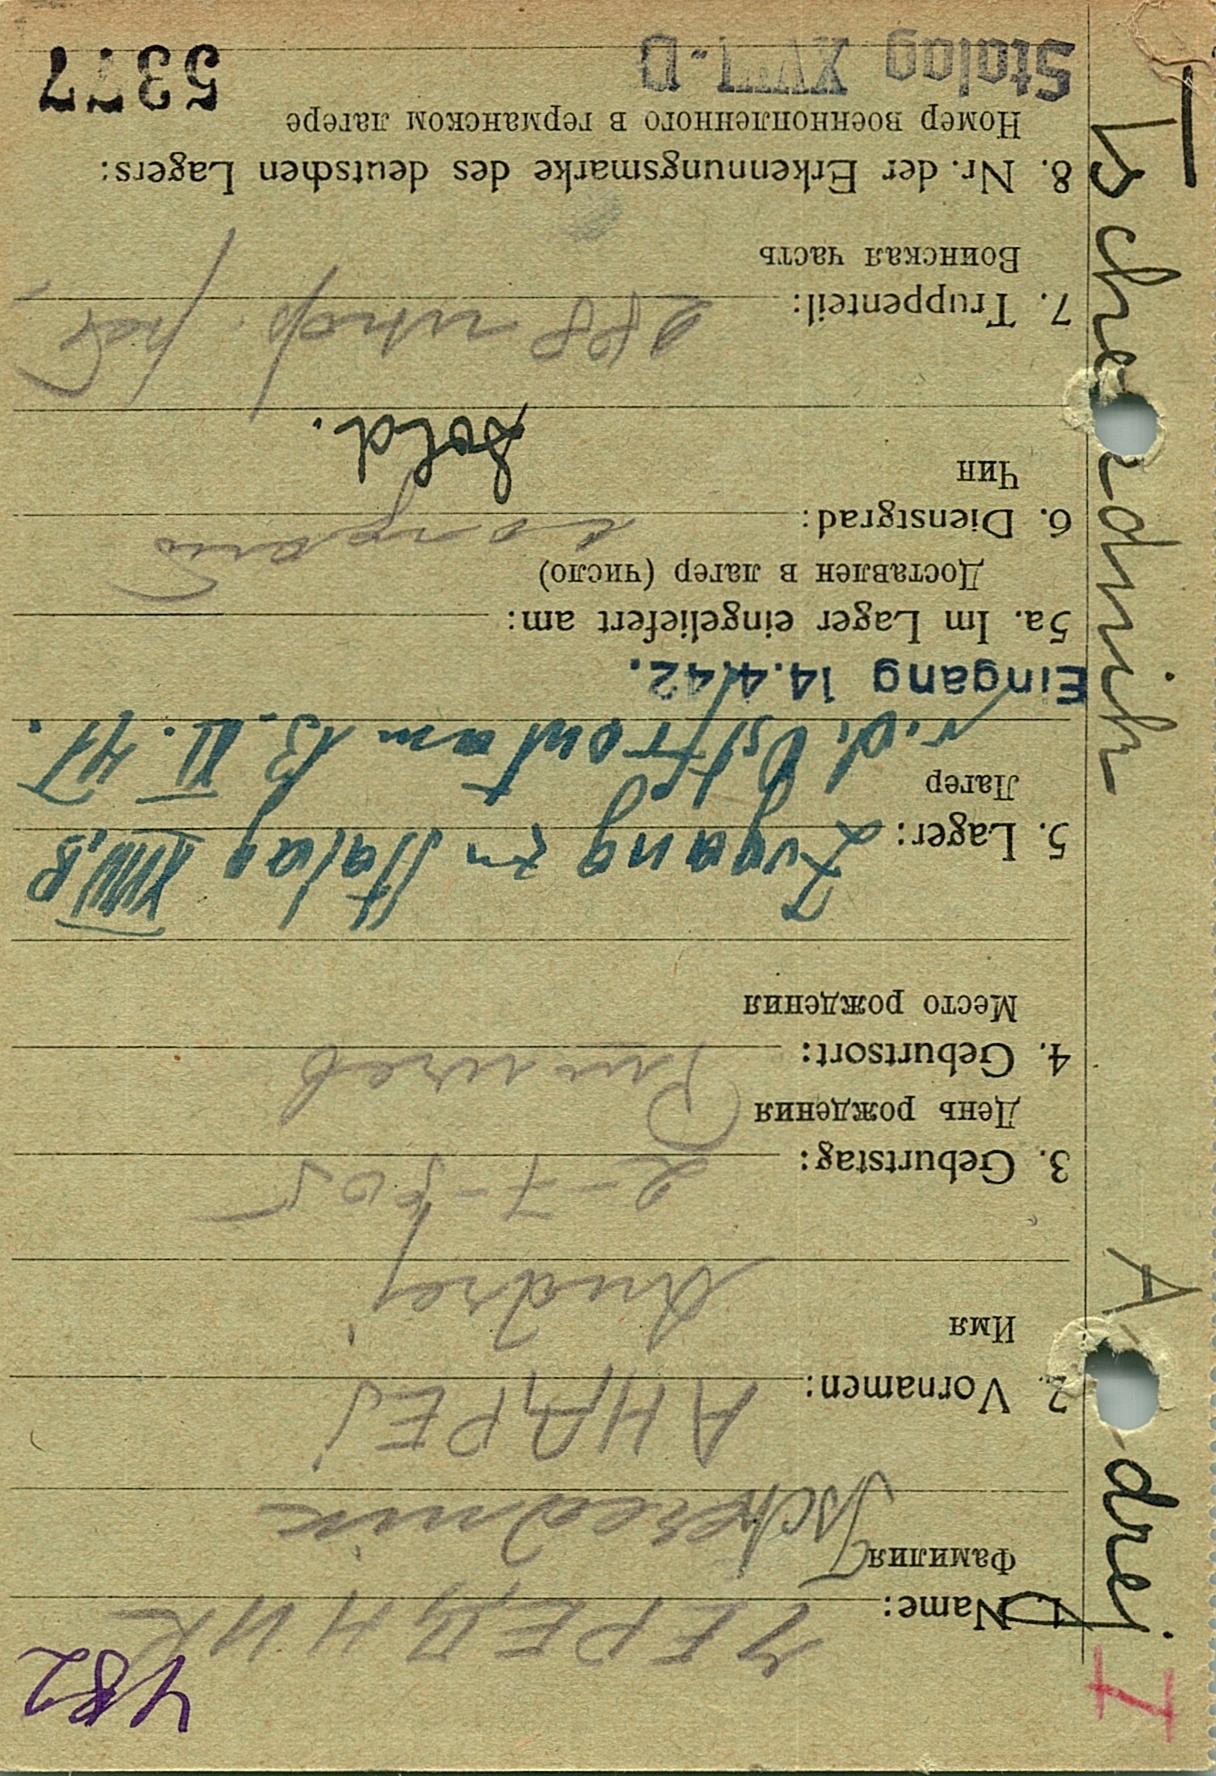 482
I
1. Name: ЧЕРЕДНИК
Фамилия Tscherednik
2. Vornamen: АНДРЕJ
Имя
Andrej
3. Geburtstag: 2-7-905
День рождения
4. Geburtsort:
Место рождения
5. Lager: Zugang zu Stalag XVIII,B
Лагер
v. d. Ostfront am 13. XI. 41.
Eingang 14.4.42.
5a. Im Lager eingeliefert am:
Доставлен в лагер (число)
6. Dienstgrad:
Чин
Sold.
7. Truppenteil: 288
Воинская часть
8. Nr. der Erkennungsmarke des deutschen Lagers:
Номер военнопленного в германском лагере
Stalag XVII-D 5377
Tscherednik Andrej